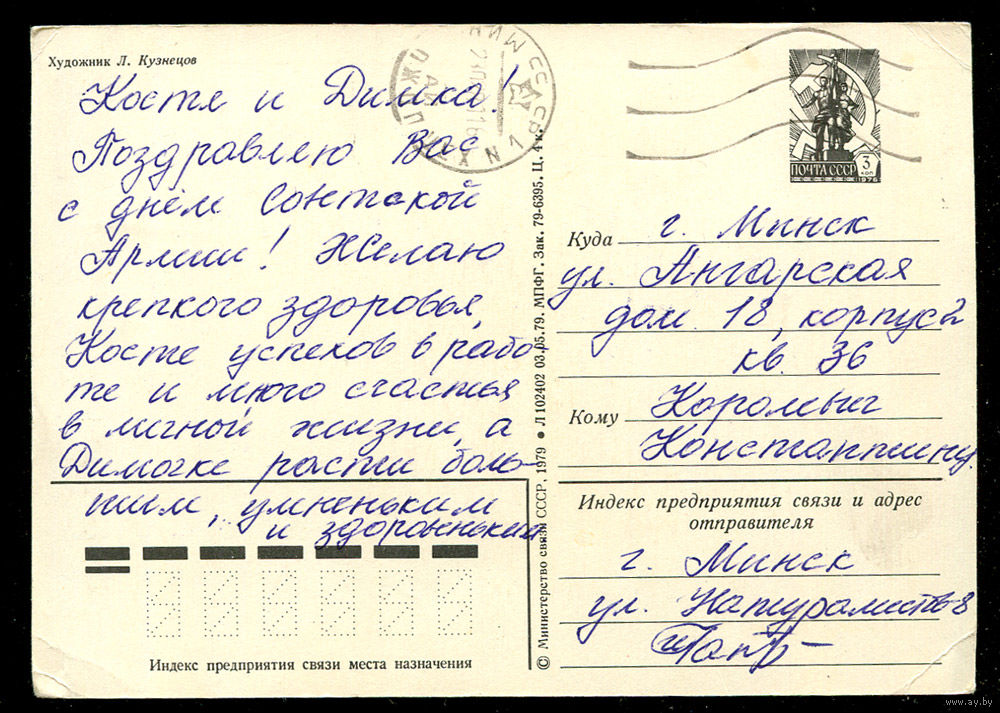 Художник Л. Кузнецов
Костя и Димка!
Поздравляю Вас
с днём Советской
Армии! Желаю
крепкого здоровья,
Косте успехов в рабо-
те и много счастья
в личной жизни, а
Димочке расти боль-
шим, умненьким
и здоровеньким
Индекс предприятия связи места назначения
© Министерство связи СССР, 1979 • Л 102402 03.05.79. МПФГ. Зак. 79-6395. Ц. 4 к.
ПОЧТА СССР
3
КОП
1976
Куда г. Минск
ул. Ангарская
дом. 18, корпус 2
кв. 36
Кому
Константину
Индекс предприятия связи и адрес
отправителя
г. Минск
ул. Натуралистов 8
www.ay.by